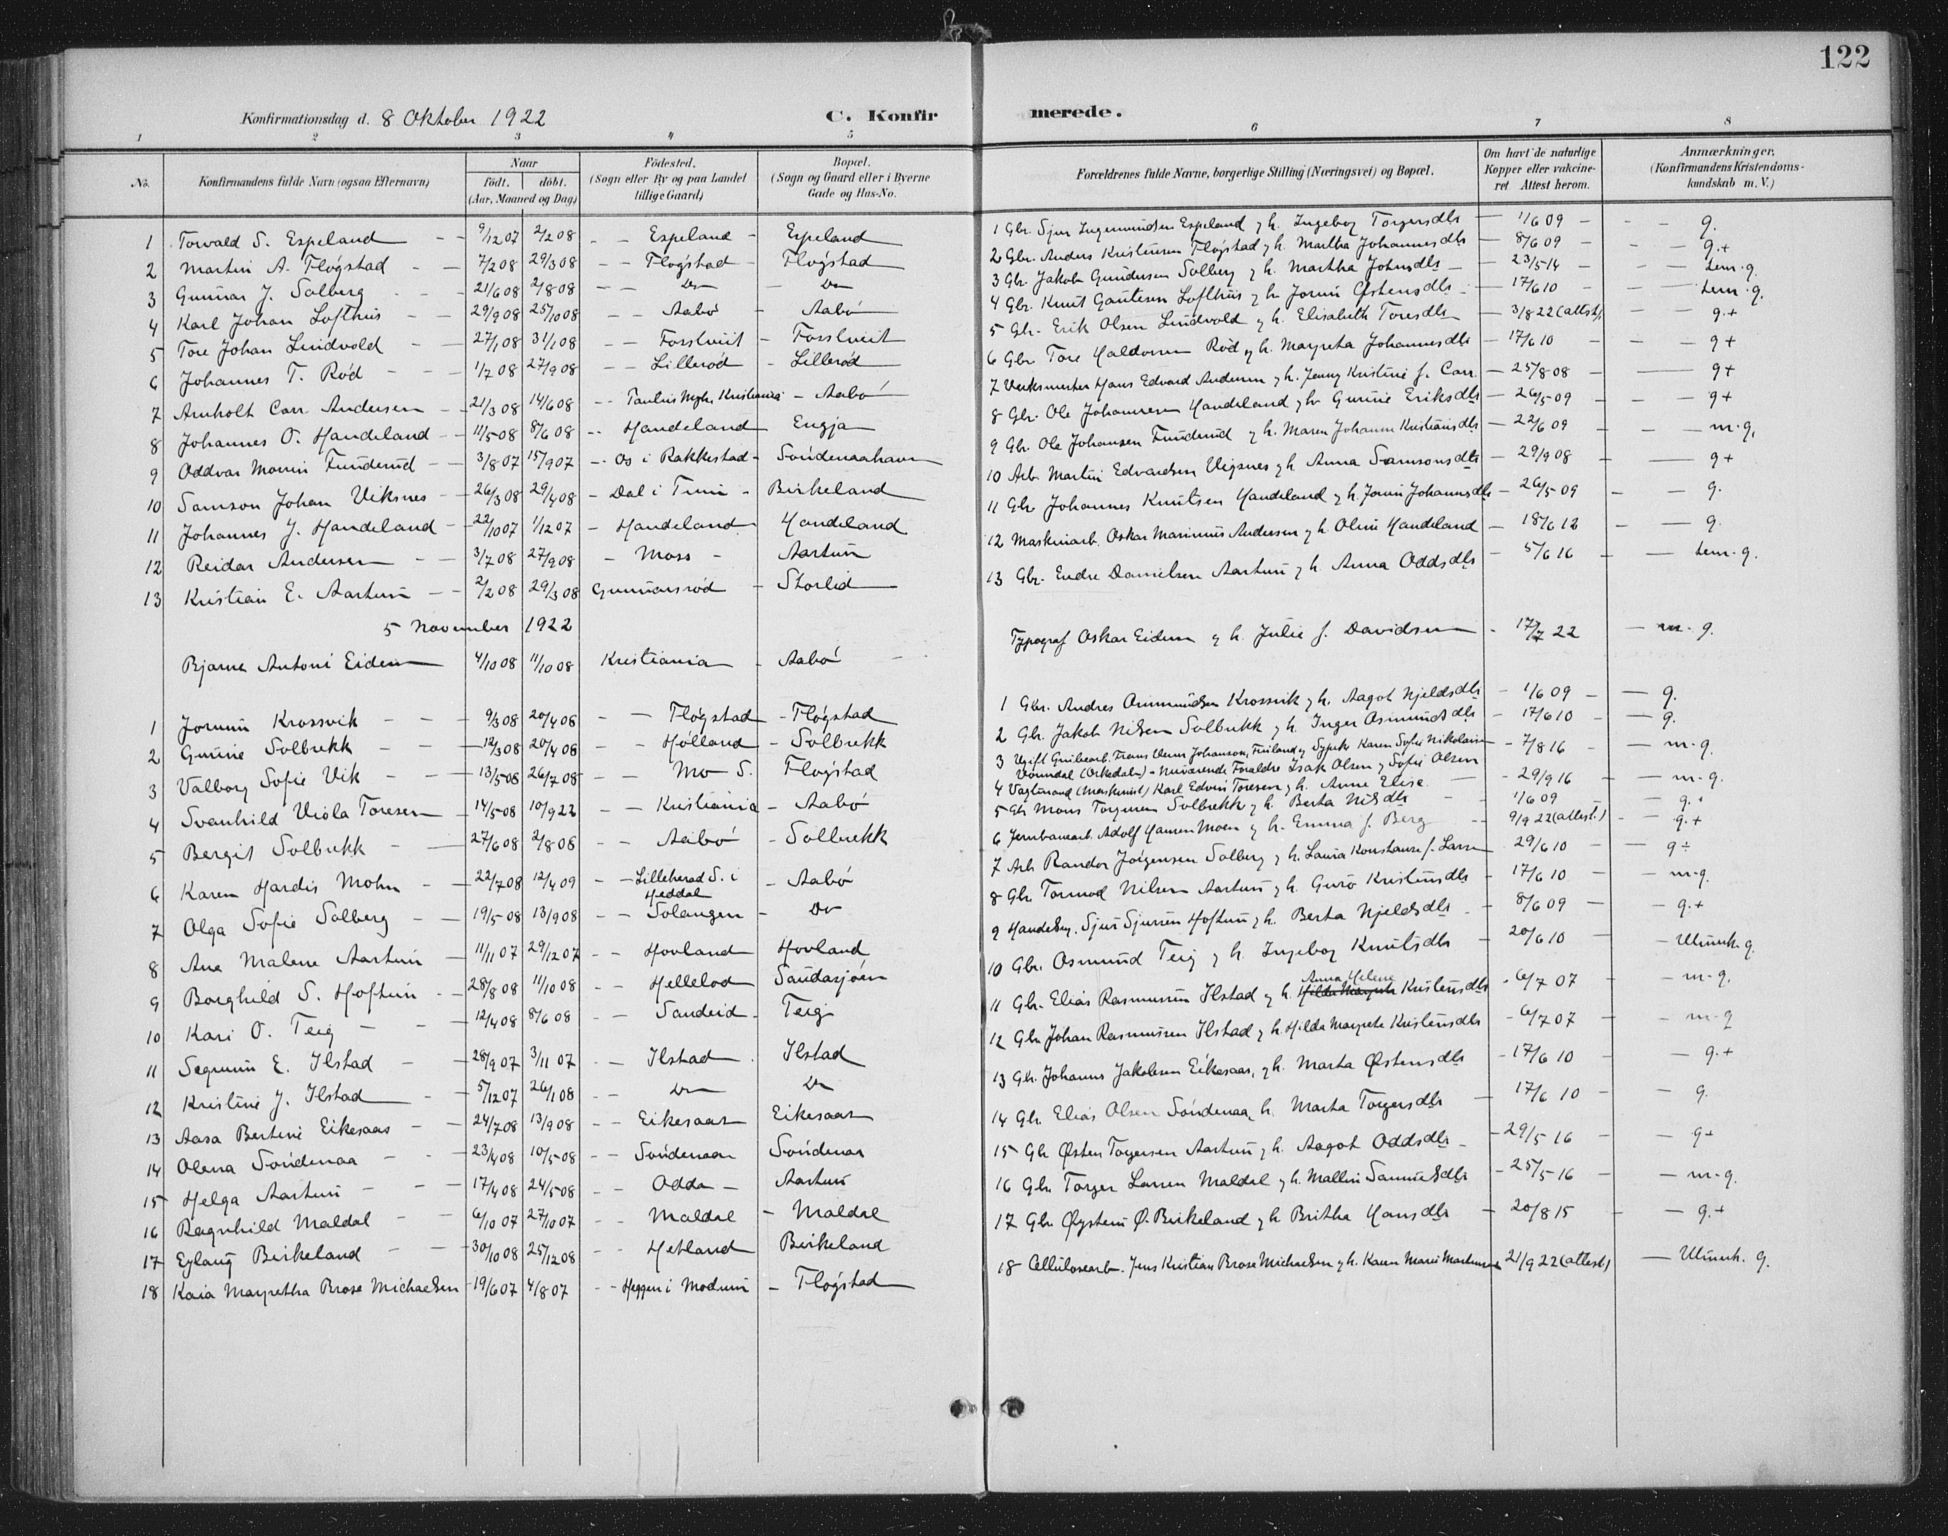 122
Konfirmationsdag d. 8 Oktober 1922 C. Konfirmerede.
1 2 3 4 5 6 7 8
No. Konfirmandens fulde Navn (ogsaa Efternavn) Naar født. døbt. (Aar, Maaned og Dag) Fødested. (Sogn eller By og paa Landet tillige Gaard) Bopæl. (Sogn og Gaard eller i Byerne Gade og Hus-No. Forældrenes fulde Navne, borgerlige Stilling (Næringsvei) og Bopæl. Om havt de naturlige Kopper eller vakcineret Attest herom. Anmærkninger. (Konfirmandens Kristendomskundskab m. V.)
1 Torvald S. Espeland 9/12 07 2/2 08 Espeland Espeland 1 Gbr. Sjur Ingemundsen Espeland og h. Ingeborg Torgersdtr 1/6 09 g.
2 Martin A. Fløgstad 7/2 08 29/3 08 Fløgstad Fløgstad 2 Gbr. Anders Kristensen Fløgstad og h. Martha Johannesdtr 8/6 09 g.+
3 Gunnar J. Solberg 21/6 08 2/8 08 Do Do 3 Gbr. Jakob Gundersen Solberg og h. Martha Johnsdtr 23/5 14 tem. g.
4 Karl Johan Lofthus 29/9 08 25/10 08 Aabø Aabø 4 Gbr. Knut Gautesen Lofthus og h. Jorun Østensdtr 17/6 10 tem. g.
5 Tore Johan Lindvold 27/1 08 31/1 08 Fosstveit Fosstveit 5 Gbr. Erik Olsen Lindvold og h. Elisabeth Toresdtr 3/8 22 (attest) g.+
6 Johannes T. Rød 1/7 08 27/9 08 Lillerød Lillerød 6 Gbr Tore Haldorsen Rød og h. Margreta Johannesdtr 17/6 10 g+
7 Arnholt Carr. Andersen 21/3 08 14/6 08 Paulus Mgh. Kristiania Aabø 7 Verksmester Hans Edvard Andersen og h. Jenny Kristine f. Carr. 25/8 08 g+
8 Johannes O. Handeland 11/5 08 8/6 08 Handeland Engja 8 Gbr. Ole Johannesen Handeland og h Gurine Eriksdtr 26/5 09 g+
9 Oddvar Funderud 3/8 07 15/9 07 Os i Rakkestad Søndenaahavn 9 Gbr. Ole Johansen Funderud og h. Maren Johanne Kristiansdtr 22/6 09 m.g.
10 Samson Johan Viksnes 26/3 08 29/4 08 Dal i Tinn Birkeland 10 Arb. Martin Edvardsen Vigsnes og h Anna Samsonsdtr 29/9 08 g+
11 Johannes J. Handeland 22/10 07 1/12 07 Handeland Handeland 11 Gbr Johannes Knutsen Handeland og h. Jorun Johannesdtr 26/5 09 g.
12 Reidar Andersen 3/7 08 27/9 08 Moss Aartun 12 Maskinarb. Oskar Marinius Andersen og h. Oline Handeland 18/6 12 g.
13 Kristian E. Aartun 2/2 08 29/3 08 Gunnarsrød Storlid 13 Gbr. Endre Danielsen Aartun og h. Anna Oddsdtr 5/6 16 tem. g.
5 November 1922
Bjarne Antoni Eidem 4/10 08 11/10 08 Kristiania Aabø Typograf Oskar Eidem og h. Julie f. Davidsen 17/7 22 m. g.
1 Jorunn Krossvik 9/3 08 20/4 08 Fløgstad Fløgstad 1 Gbr. Andres Ommundsen Krossvik og h. Aagot Njeldsdtr 1/6 09 g.
2 Gurine Solbrekk 12/3 08 20/4 08 Hølland Solbrekk 2 Gbr. Jakob Nilsen Solbrekk og h. Inger Osmundsdtr 17/6 10 g.
3 Valborg Sofie Vik 13/5 08 26/7 08 Mo S. Fløgstad 3 Ugift Grubearb. Frans Johanson, Finland og Sypike Karen Sofie Nikolaisen (Orkedalen) - Nuværende Forældre Isak Olsen og Sofie Olsen 7/8 16 m.g.
4 Svanhild Viola Toresen 14/5 08 10/9 22 Kristiania Aabø 4 Vagtmand (Maskinist) Karl Edvin Toresen og h. Anne Elise 29/9 16 m.g.
5 Bergit Solbrekk 27/6 08 2/8 08 Aabø Solbrekk 5 Gbr Mons Torgersen Solbrekk og h. Berta Nilsdtr 1/6 09 g.+
6 Karen Hardis Mohn 22/7 08 12/4 09 Lilleherad S. i Heddal Aabø 6 Jernbanearb. Adolf Hansen Moen og h. Emma f. Berg 9/9 22 (attest.) g.+
7 Olga Sofie Solberg 19/5 08 13/9 08 Solangen Do 7 Arb Randor Jørgensen Solberg og h. Laura Konstanse f. Larsen 29/6 10 g÷
8 Ane Malene Aartun 11/11 07 29/12 07 Hovland Hovland 8 Gbr Tormod Nilsen Aartun og h. Guro Kristensdtr 17/6 10 m.g.
9 Borghild S. Hoftun 28/8 08 11/10 08 Helleland Saudasjøen 9 Handelsm. Sjur Sjursen Hoftun og h. Berta Njeldsdtr 8/6 09 g.+
10 Kari O. Teig 12/4 08 8/6 08 Sandeid Teig 10 Gbr. Osmund Teig og h. Ingeborg Knutsdtr 20/6 10 Utmerk. g.
11 Segrunn E. Ilstad 28/9 07 3/11 07 Ilstad Ilstad 11 Gbr. Elias Rasmussen Ilstad og h. Hilda Margrete Anna Helene Kristensdtr 6/7 07 m.g.
12 Kristine J. Ilstad 5/12 07 26/1 08 Do Do 12 Gbr Johan Rasmussen Ilstad og h. Hilda Margrete Kristensdtr 6/7 07 m.g
13 Aasa Bertine Eikesaas 24/7 08 13/9 08 Eikesaas Eikesaas 13 Gbr. Johannes Jakobsen Eikesaas, og h. Marta Østensdtr 17/6 10 g.+
14 Olena Søndenaa 23/4 08 10/5 08 Søndenaa Søndenaa 14 Gbr Elias Olsen Søndenaa h. Marta Torgersdtr 17/6 10 g.
15 Helga Aartun 17/4 08 24/5 08 Odda Aartun 15 Gbr Østen Torgersen Aartun og h. Aagot Oddsdtr 29/5 16 g+
16 Ragnhild Maldal 6/10 07 27/10 07 Maldal Maldal 16 Gbr. Torger Larsen Maldal og h. Mallin Samuelsdtr 25/5 16 m.g.
17 Eylaug Birkeland 30/10 08 25/12 08 Hetland Birkeland 17 Gbr Øystein Ø. Birkeland og h Britha Hansdtr 20/8 15 g.+
18 Kaia Margretha Brose Michaelsen 19/6 07 4/8 07 Heggen i Modum Fløgstad 18 Cellulosearb. Jens Kristian Brose Michaelsen og h. Karen Marie Martinsen 21/9 22 (attest) Utmerk. g.